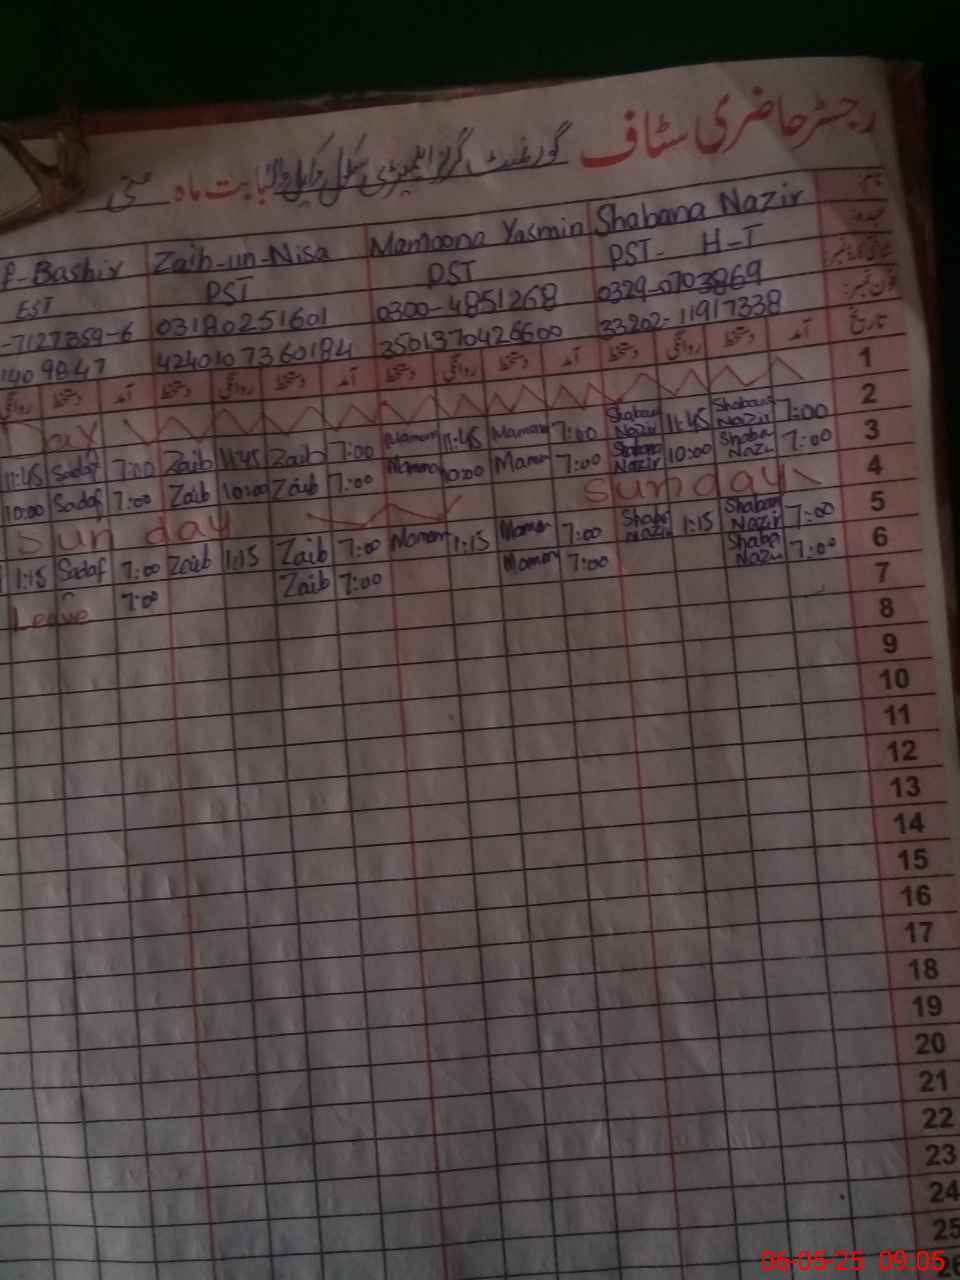 رجسٹر حاضری سٹاف گورنمنٹ گرلز ایلیمنٹری سکول بابت ماہ مئی
نام: Shabana Nazir Mamoona Yasmin Zaib-un-Nisa Bashir
عہدہ: PST- H-T PST PST EST
0329-0703869 0300-4851268 03180251601 -7127359-6
فون نمبر: 33202-11917338 3501370426600 4240107360184 1409847
تاریخ آمد دستخط روانگی دستخط آمد دستخط روانگی دستخط آمد دستخط روانگی دستخط آمد دستخط روانگی
1 Day
2 7:00 Shabana Nazir 11:45 Shabana Nazir 7:00 Mamoon 11:45 Mamoon 7:00 Zaib 11:45 Zaib 7:00 Sadaf 11:45
3 7:00 Shaba Nazi 10:00 Shabana Nazir 7:00 Mamon 10:00 Mamona 7:00 Zaib 10:00 Zaib 7:00 Sadaf 10:00
4 Sunday Sunday
5 7:00 Shabana Nazir 1:15 Shaba Nazir 7:00 Mamon 1:15 Mamoon 7:00 Zaib 1:15 Zaib 7:00 Sadaf 1:15
6 7:00 Shaba Nazi 7:00 Mamon 7:00 Zaib 7:00 Leave
7
8
9
10
11
12
13
14
15
16
17
18
19
20
21
22
23
24
25
26
06-05-25 09:05